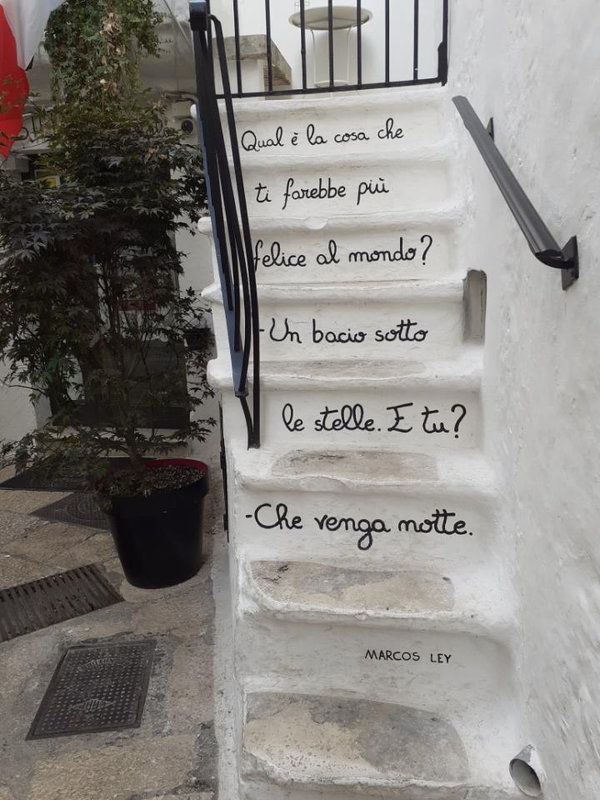 Qual è la cosa che
ti farebbe più
felice al mondo?
-Un bacio sotto
le stelle. E tu?
-Che venga notte.
MARCOS LEY